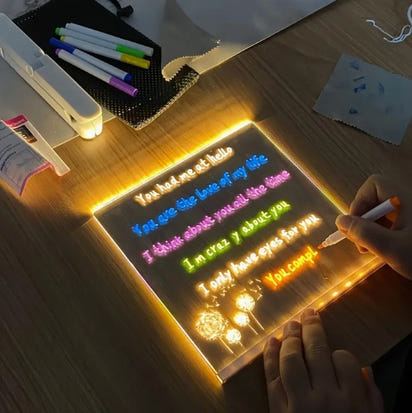 You had me at hello
You are the love of my life
I think about you all the time
I,m crazy about you
I only have eyes for you
You compl